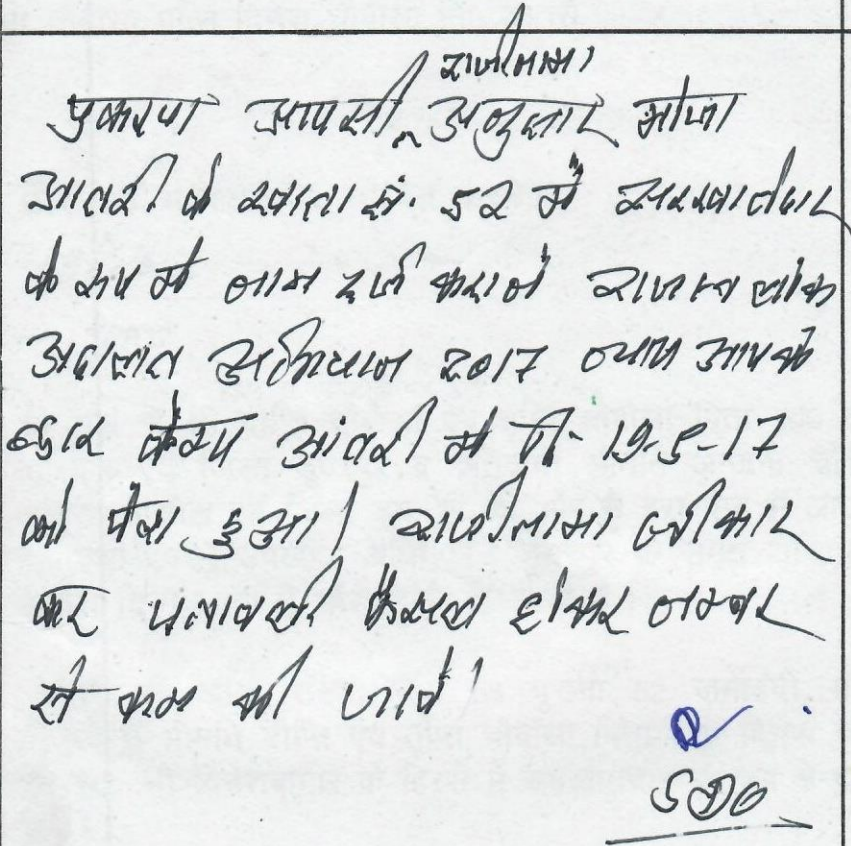 राजीनामा
प्रकरण आपसी ^ अनुसार मौजा
आवरी के खाता सं. 52 में सहखातेदार
के रूप में नाम दर्ज कराने राजस्व लोक
अदालत अभियान 2017 न्याय आपके
द्वार कैम्प आंवरी में दि. 19-5-17
को पेश हुआ। राजीनामा स्वीकार
कर पत्रावली फैसल होकर नम्बर
से कम की जावे।
SDO